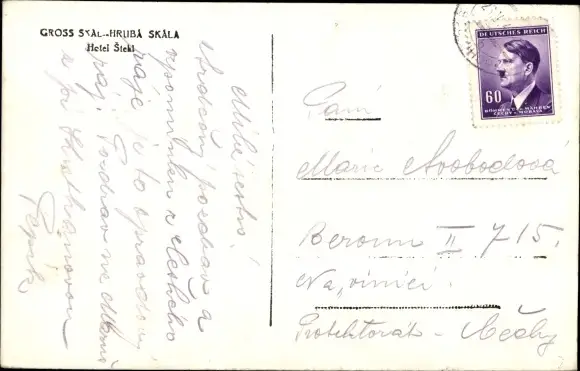 GROSS SKAL--HRUBÁ SKÁLA
Hotel Štekl
Milá sestro!
Srdečný pozdrav a
vzpomínku z Českého
ráje. Je to opravdový
ráj. Pozdrav na
Pepík
DEUTSCHES REICH
60
BÖHMEN U. MÄHREN
ČECHY A MORAVA
Paní
Marie Svobodová
Beroun II 715.
Na „vinici”.
Protektorát - Čechy